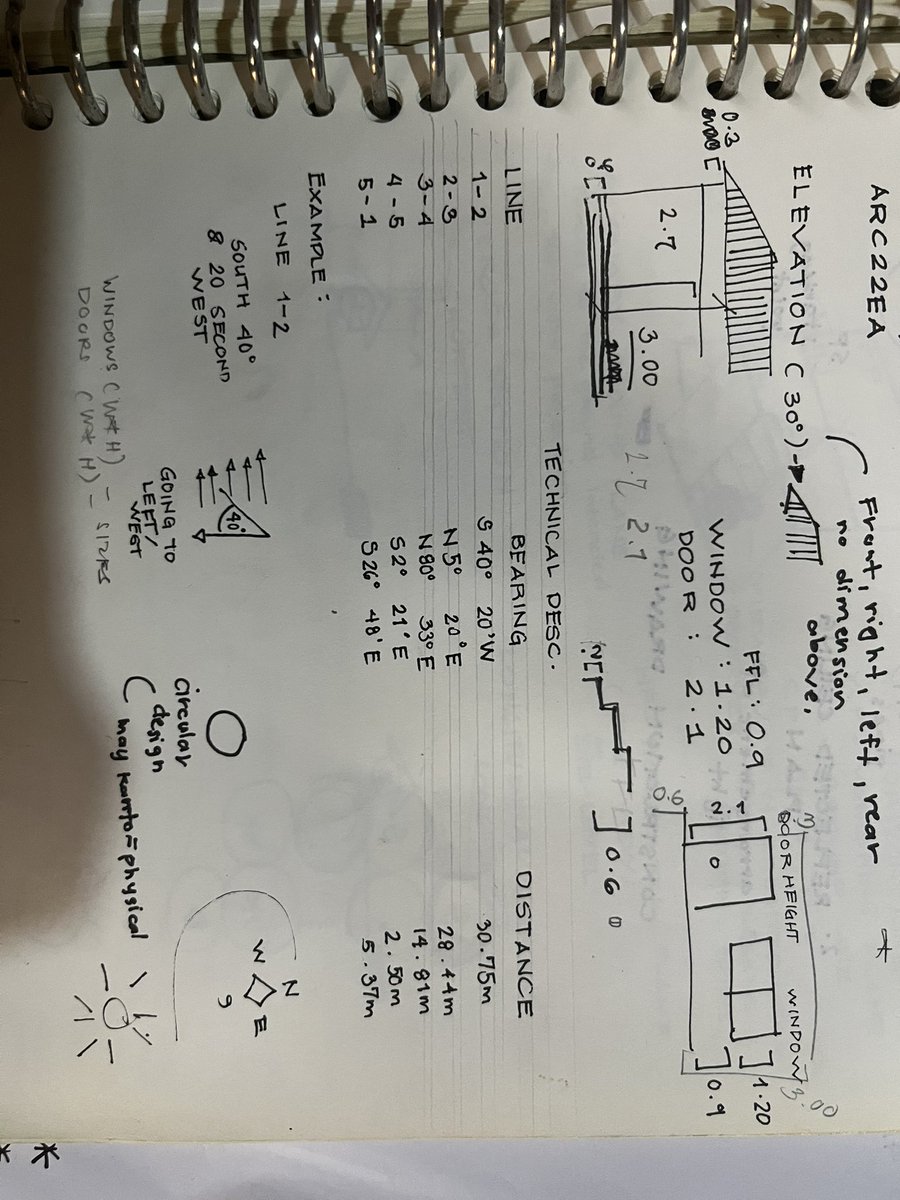 ARC22EA
Front, right, left, rear
no dimension
above,
ELEVATION (30°)
0.3
2.7
3.00
1.7 2.7
FFL: 0.9
WINDOW: 1.20
DOOR: 2.1
DOOR HEIGHT WINDOW
3.00
2.1
1.20
0.9
0.6
0.6
TECHNICAL DESC.
LINE BEARING DISTANCE
1-2 S 40° 20'W 30.75m
2-3 N 5° 20°E 28.44m
3-4 N 80° 33°E 14.81m
4-5 S 2° 21'E 2.50m
5-1 S 26° 48'E 5.37m
EXAMPLE:
LINE 1-2
SOUTH 40°
& 20 SECOND
WEST
40°
GOING TO
LEFT/
WEST
circular
design
may kanto = physical
N
W
E
S
WINDOWS (W*H) - SIZES
DOORS (W*H) -